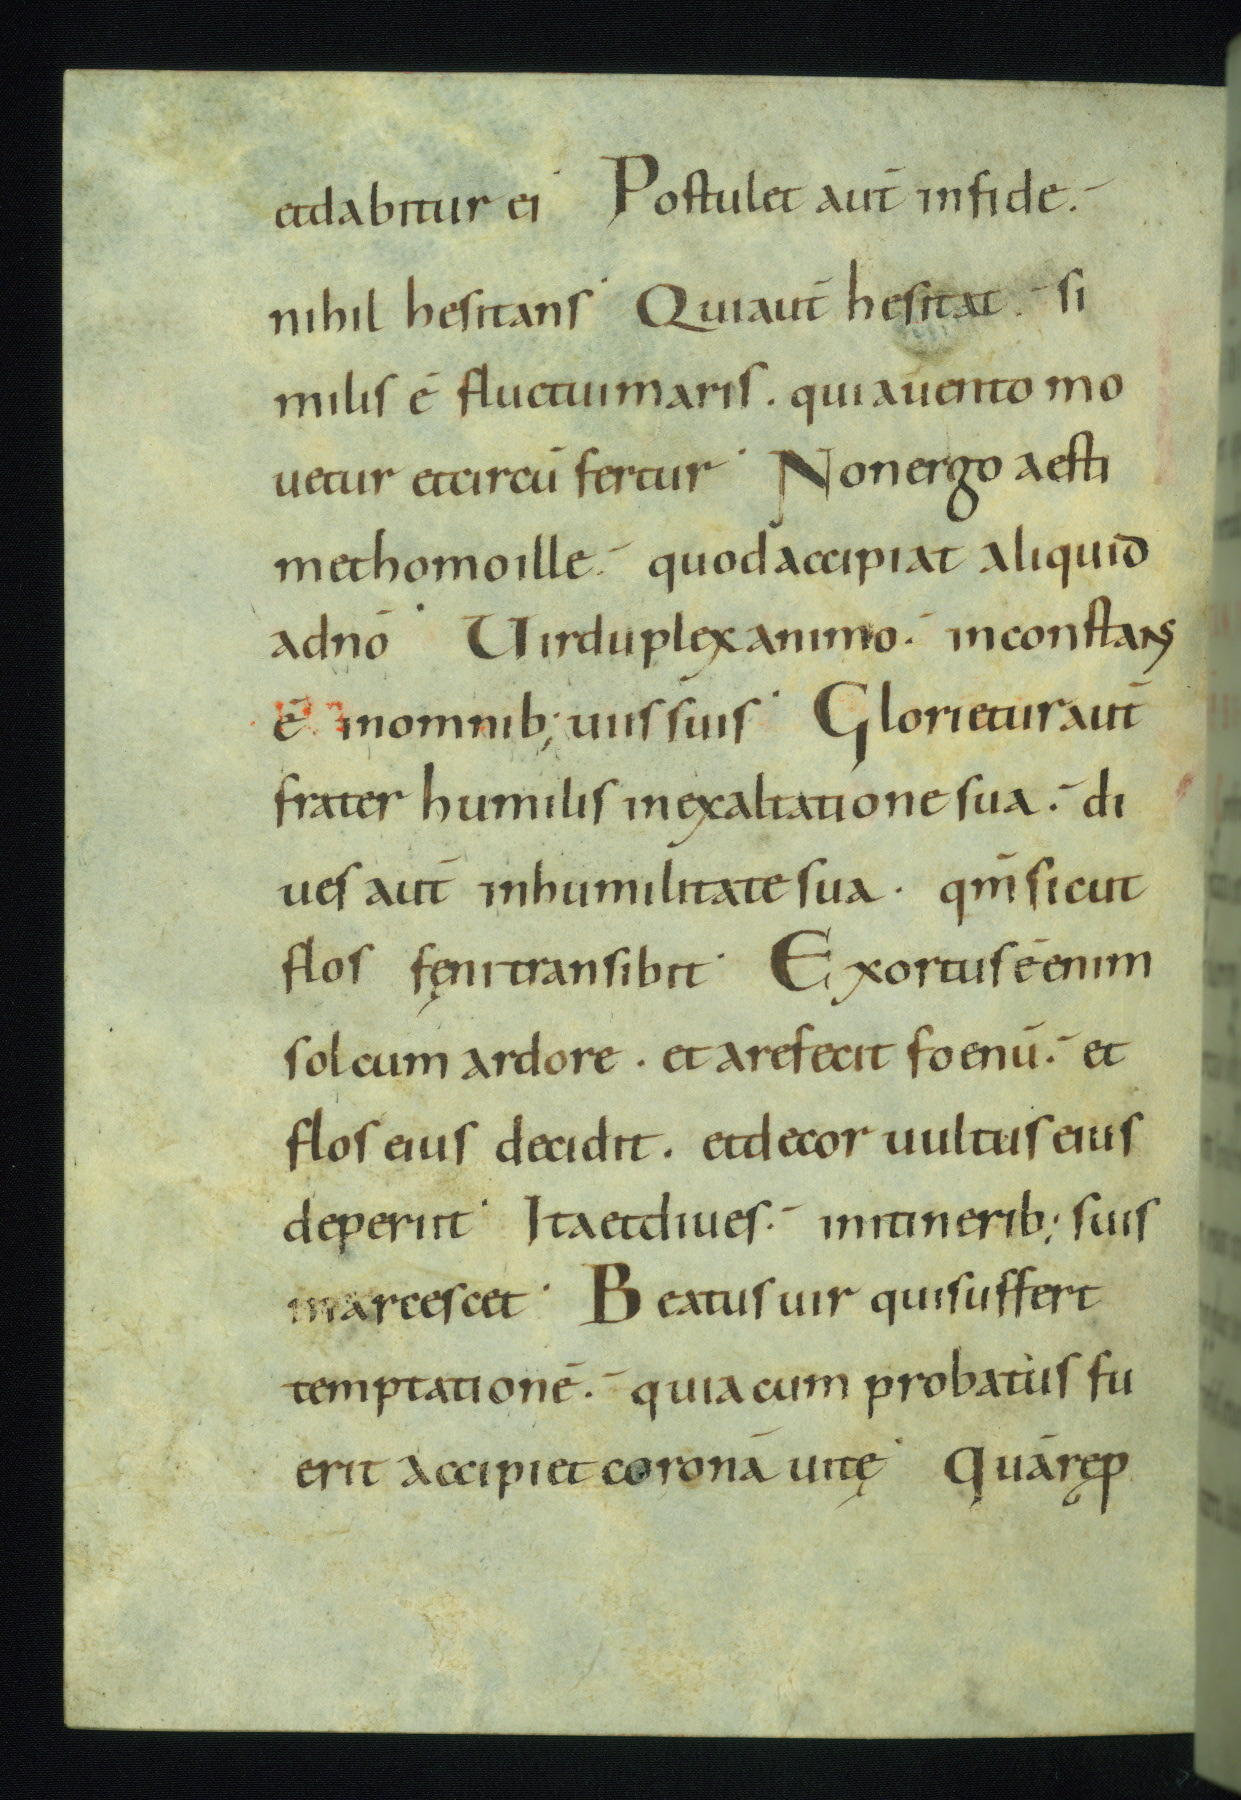 etdabitur ei· Postulet aut̄ infide.
nihil hesitans· Quiaut̄ hesitat. si
milis ē fluctuimaris. quiauento mo
uetur etcircū fertur· Nonergo aesti
methomoille. quodaccipiat aliquid
adnō· Uirduplexanimo. inconstans
ē inomnib; uiis suis· Glorieturaut̄
frater humilis inexaltatione sua. di
ues aut̄ inhumilitate sua. qm̄ sicut
flos fęnitransibit· Exortus ē enim
sol cum ardore. et arefecit foenū. et
flos eius decidit. etdecor uultus eius
deperiit· Itaetdiues. initinerib; suis
marcescet· Beatus uir quisuffert
temptationē. quia cum probatus fu
erit accipiet coronā uitę· Quārep